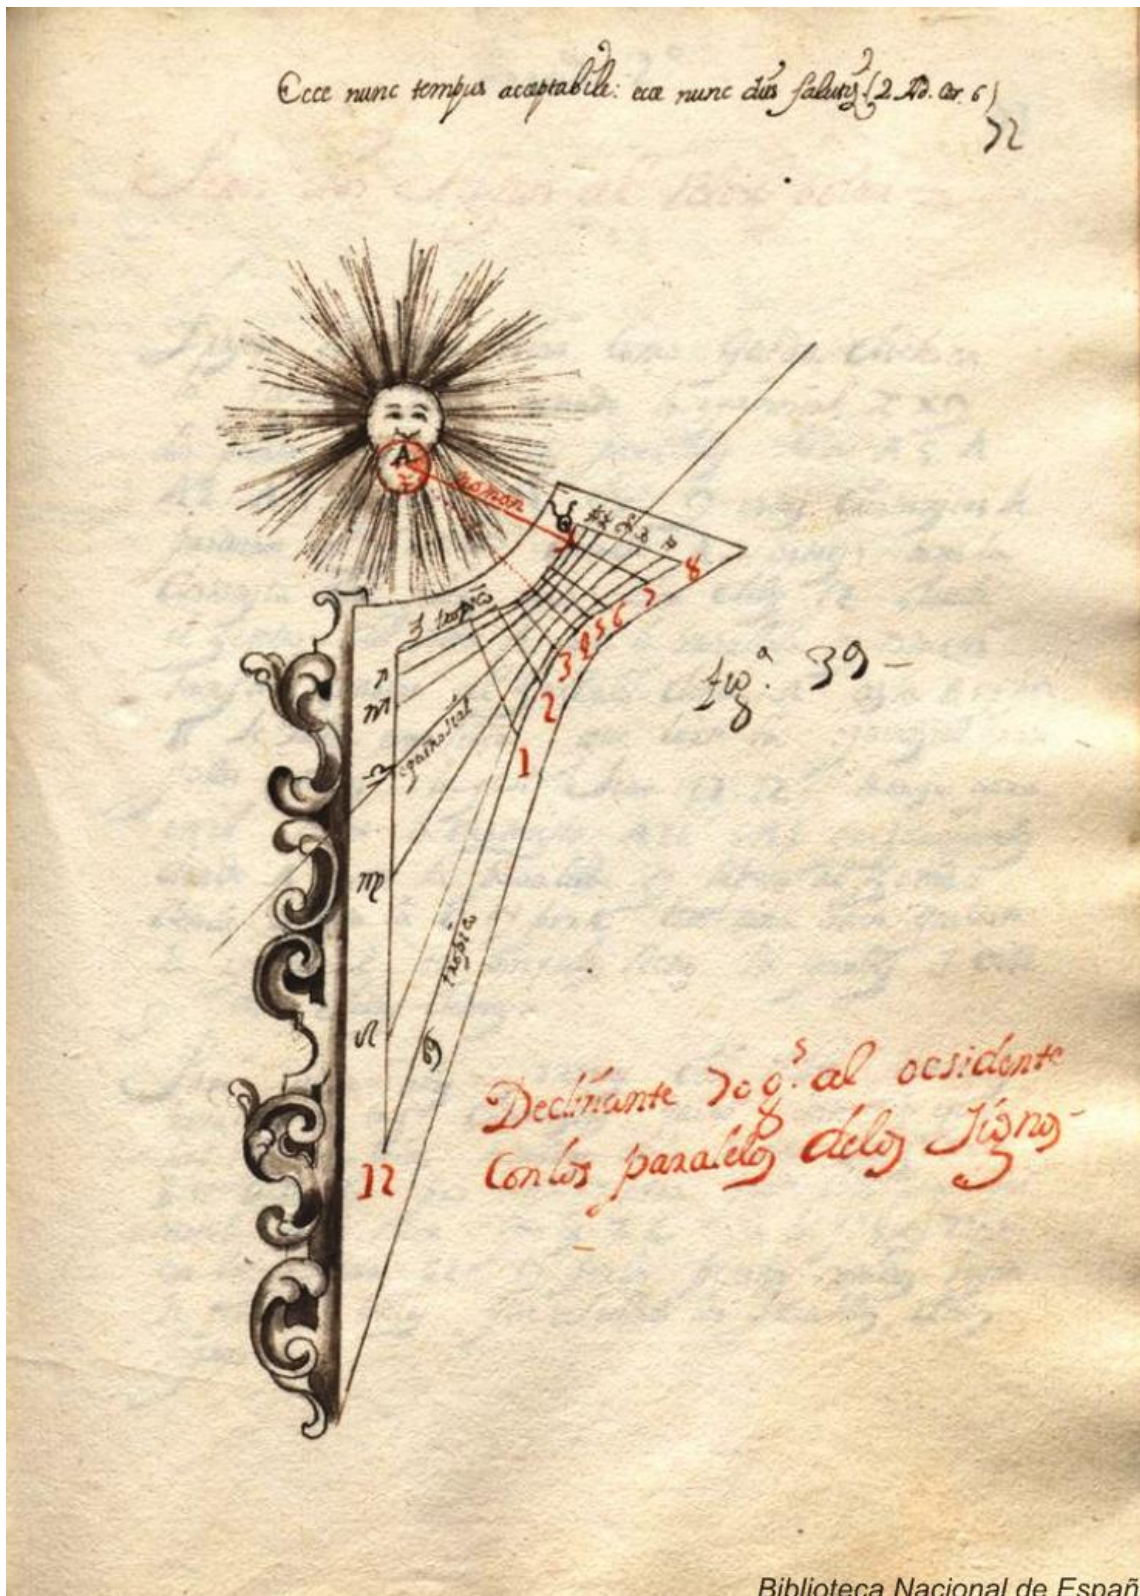 Ecce nunc tempus acceptabile: ecce nunc dies salutis (2 Ad. Cor. 6)
72
A
gnomon
tropico
8
7
6
5
4
3
2
1
figª. 39-
equinocial
tropico
12
Declinante 70 g.s al occidente
Con los paralelos delos signos
Biblioteca Nacional de Españ